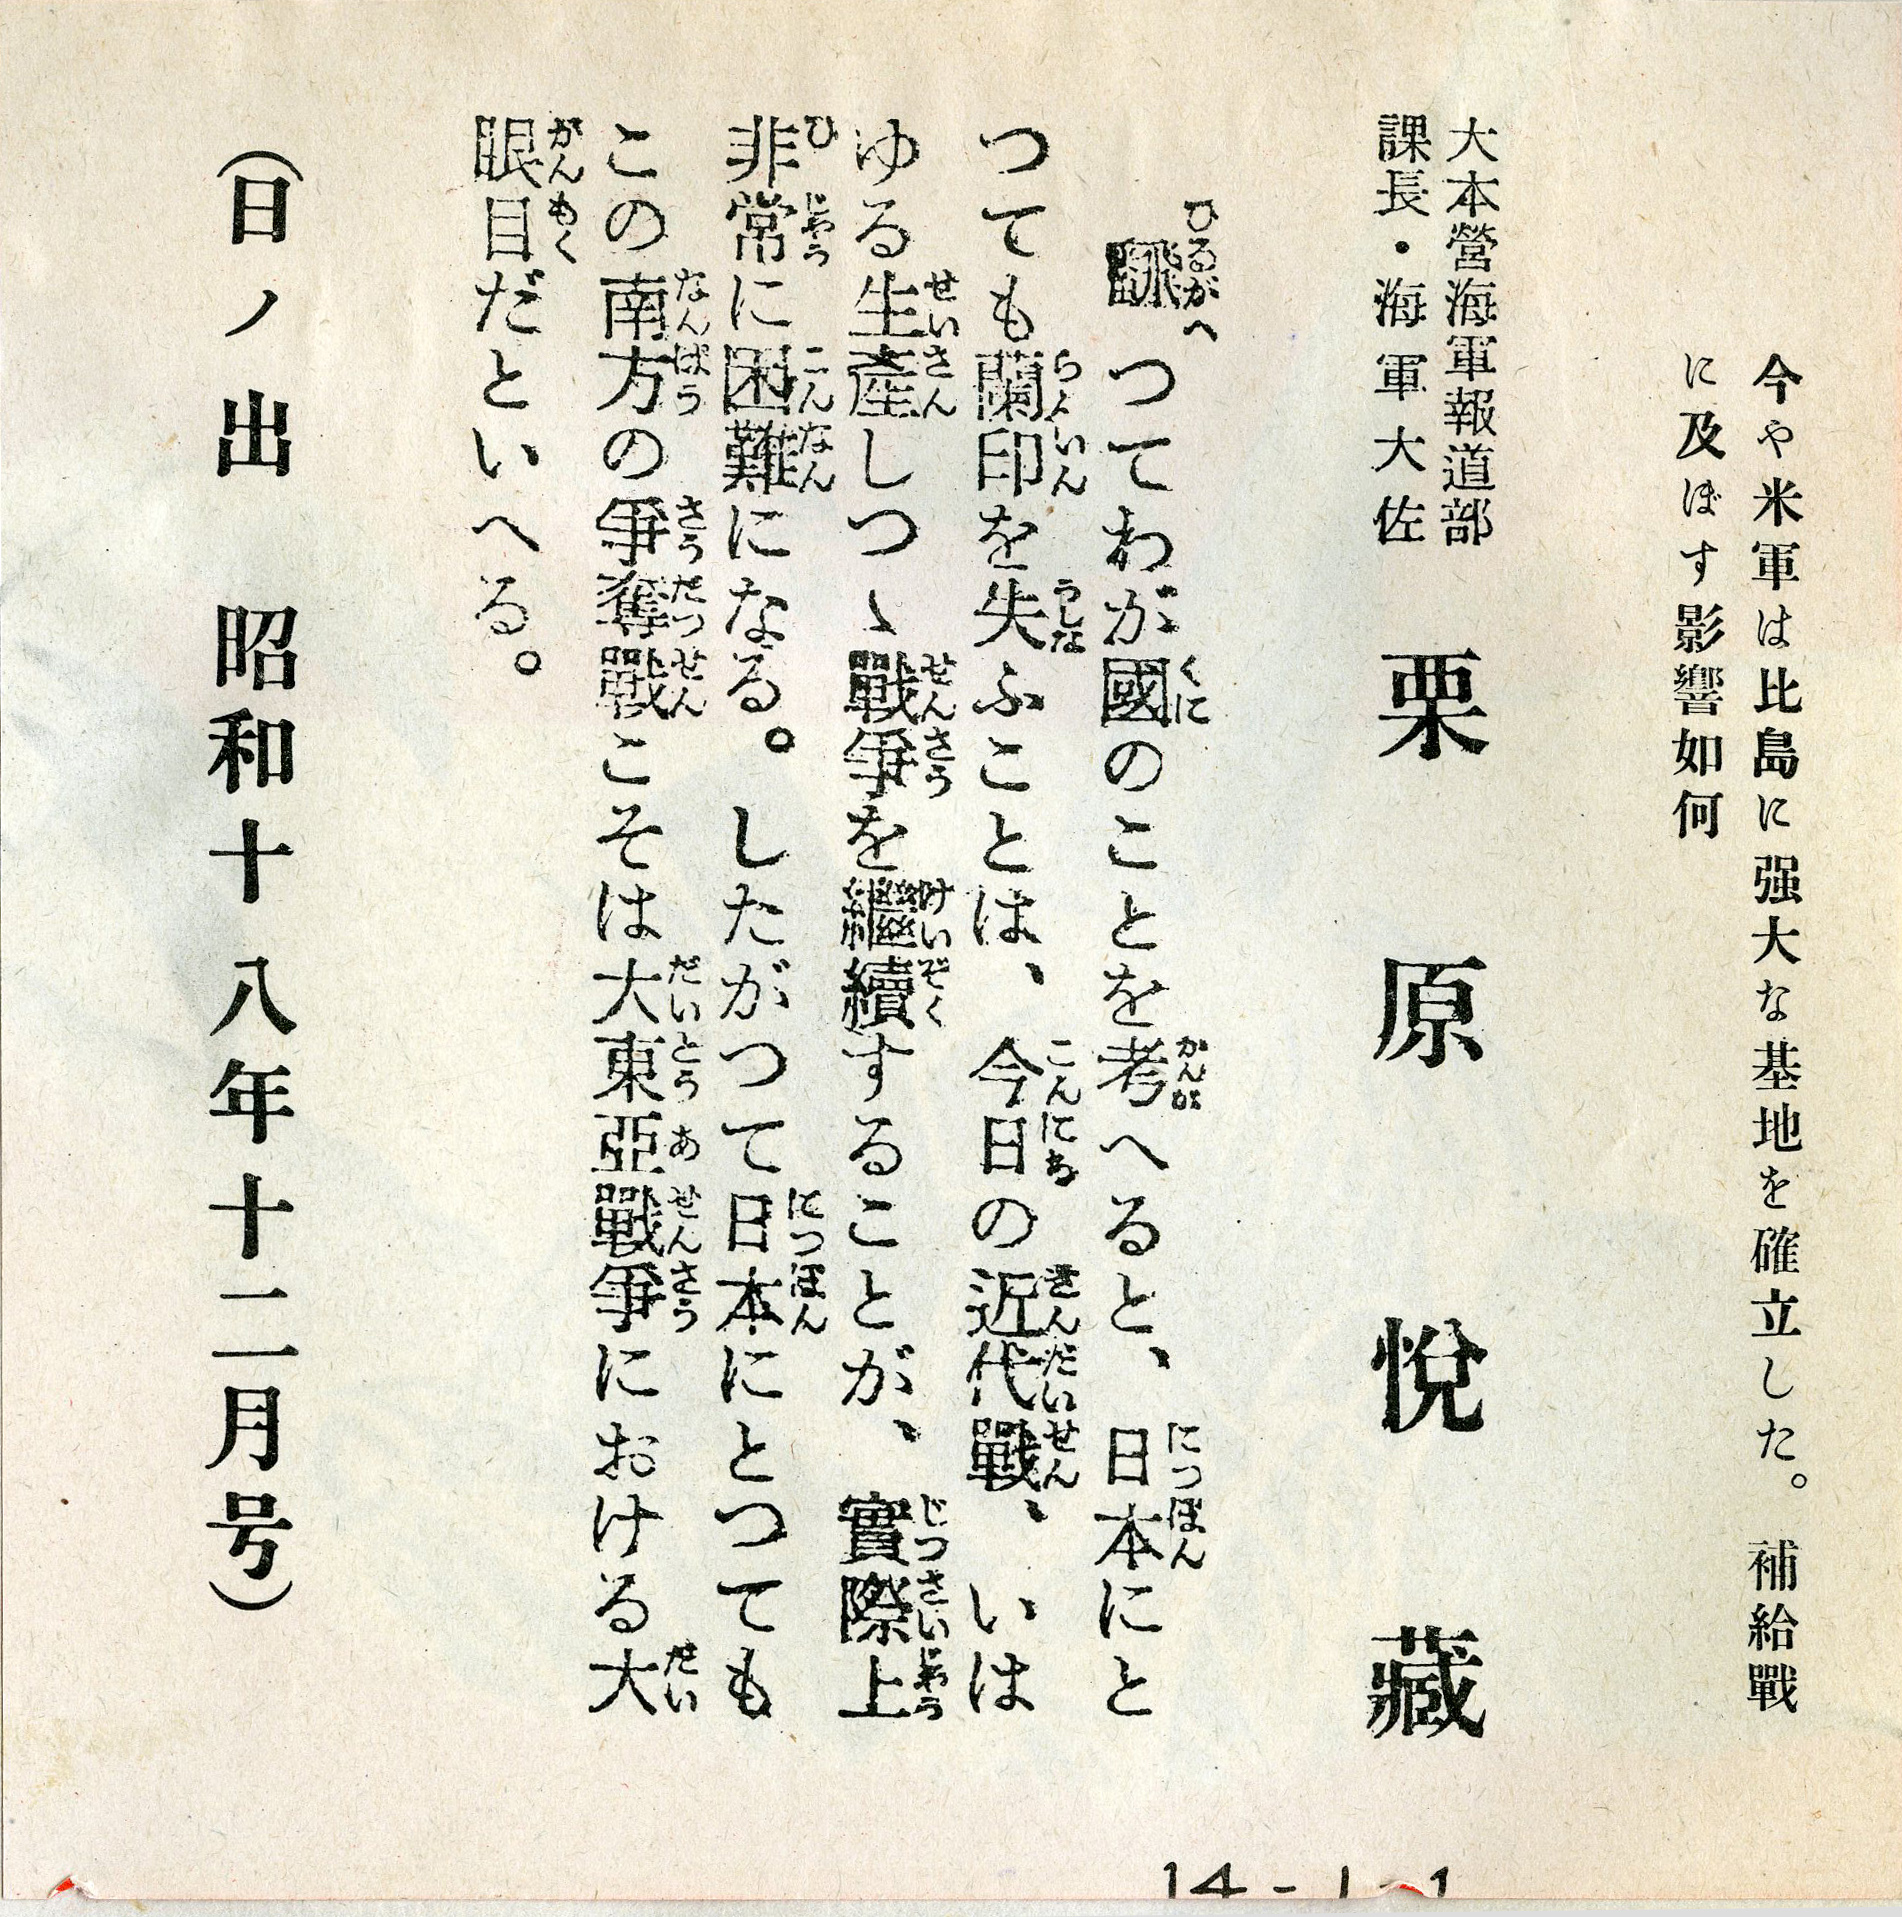 今や米軍は比島に强大な基地を確立した。補給戰
に及ぼす影響如何
大本營海軍報道部
課長・海軍大佐
栗原悅藏
飜つてわが國のことを考へると、日本にと
つても蘭印を失ふことは、今日の近代戰、いは
ゆる生產しつゝ戰爭を繼續することが、實際上
非常に困難になる。したがつて日本にとつても
この南方の爭奪戰こそは大東亞戰爭における大
眼目だといへる。
(日ノ出 昭和十八年十二月号)
14-J-1